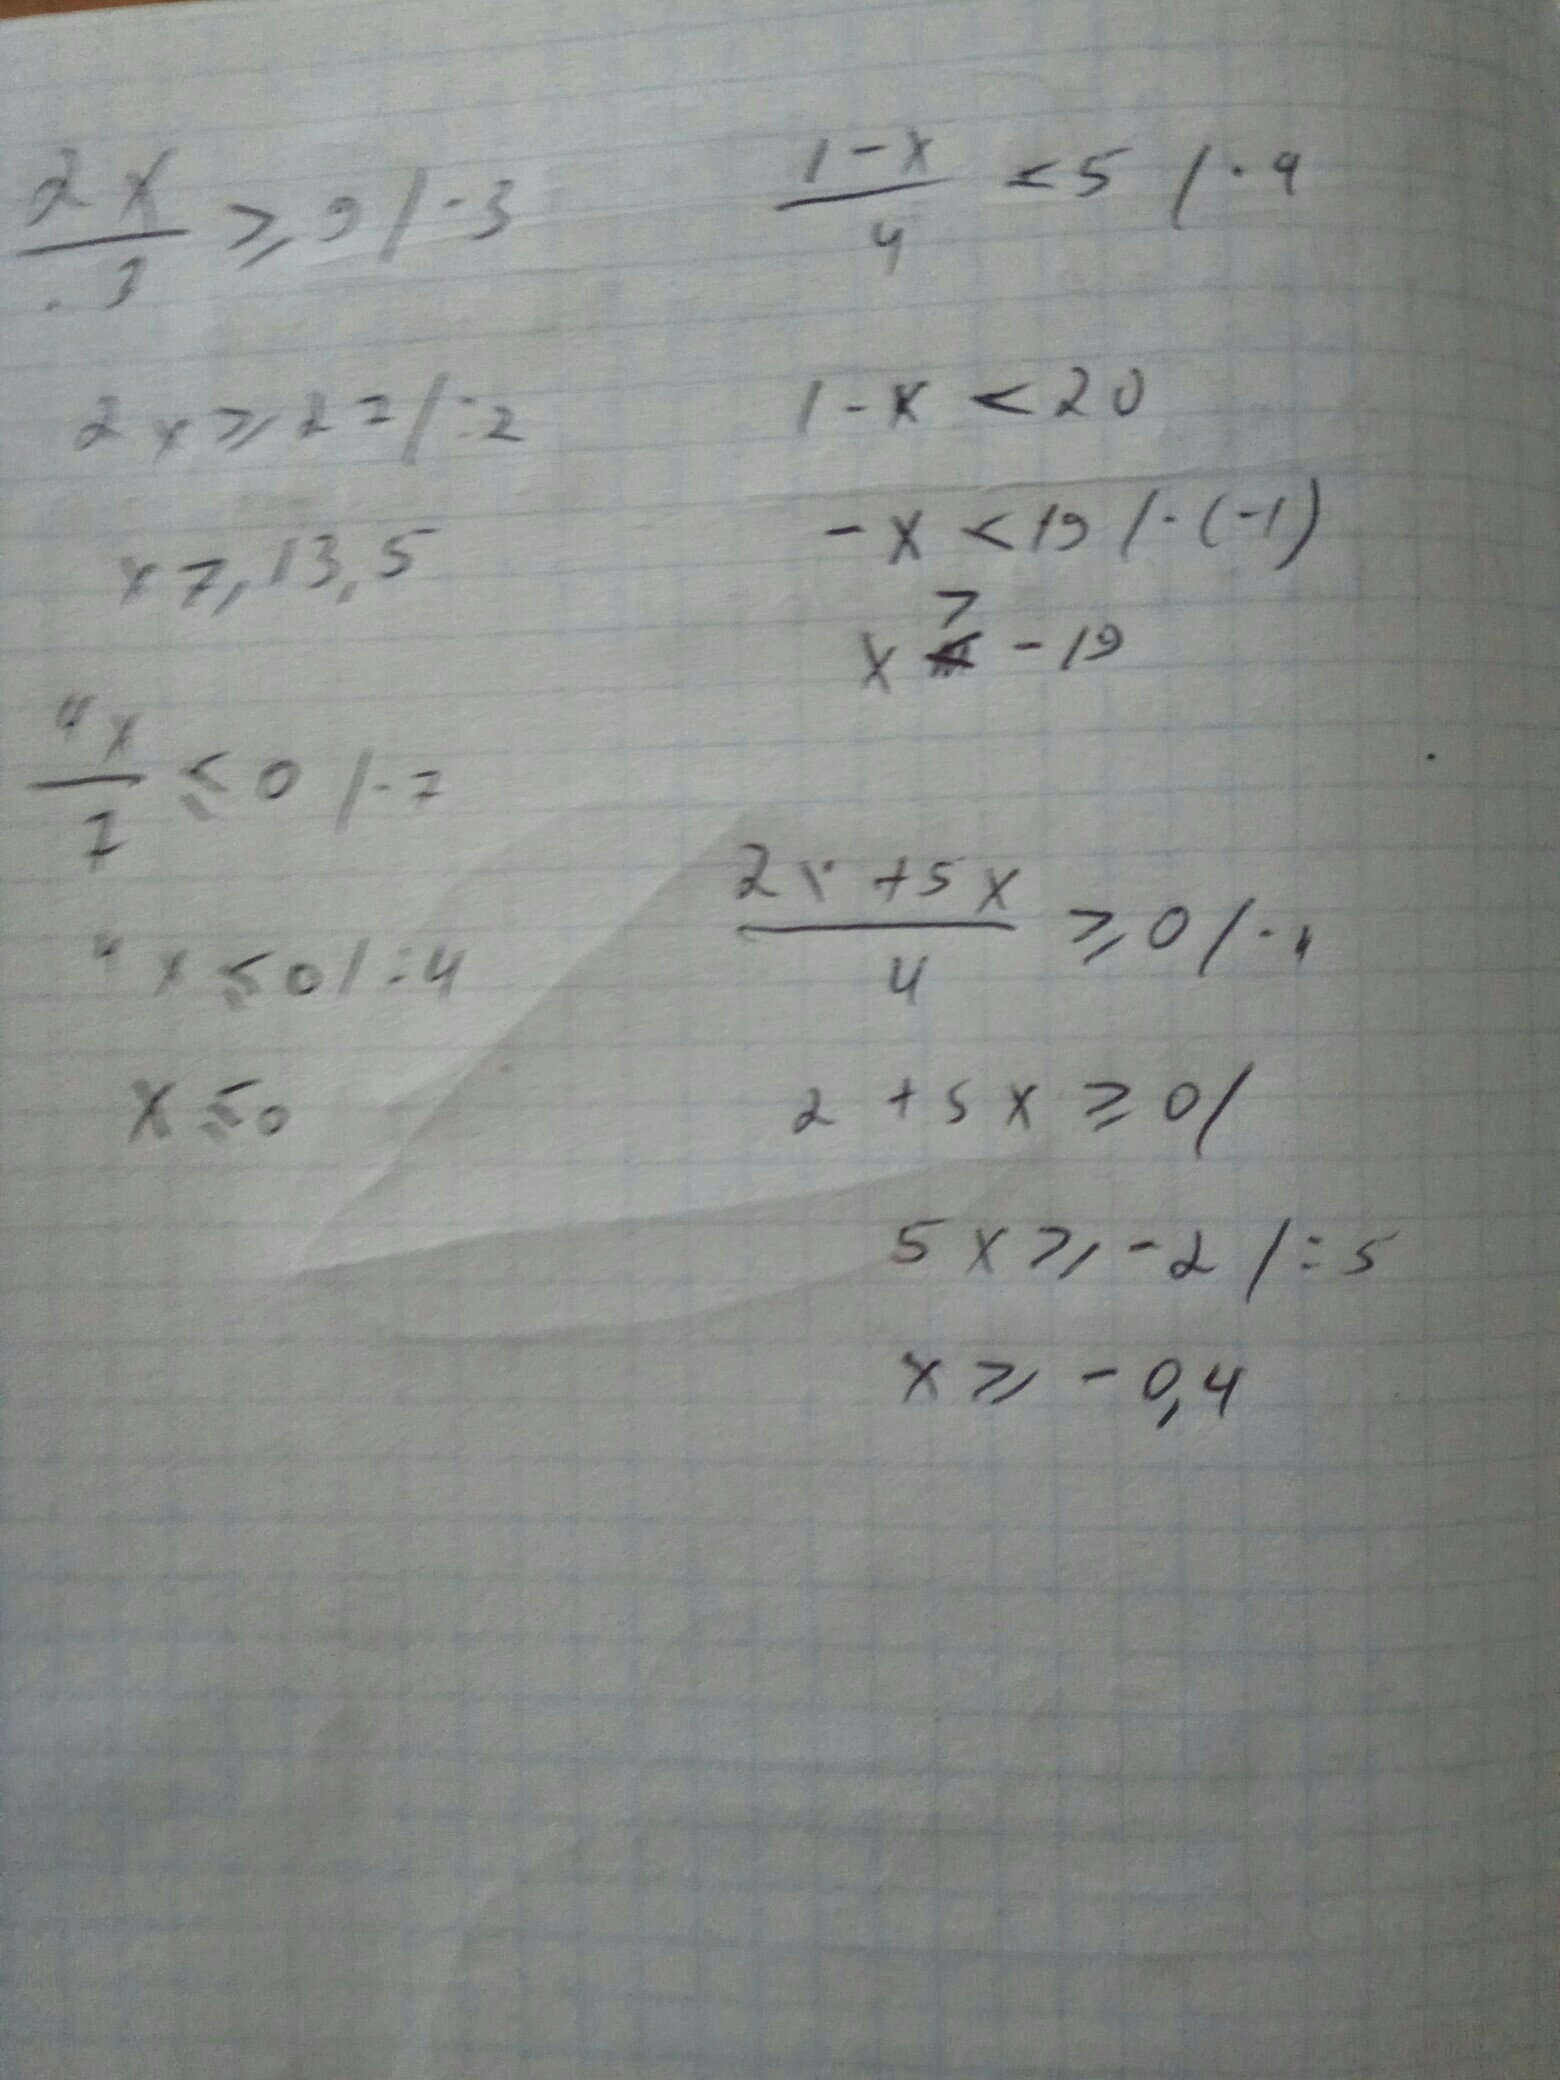 2x/3 ⩾ 9 / · 3
2x ⩾ 27 / : 2
x ⩾ 13,5
4x/7 ⩽ 0 / · 7
4x ⩽ 0 / : 4
x ⩽ 0
1-x/4 < 5 / · 4
1-x < 20
-x < 19 / · (-1)
x > -19
2 + 5x/4 ⩾ 0 / · 4
2 + 5x ⩾ 0 /
5x ⩾ -2 / : 5
x ⩾ -0,4